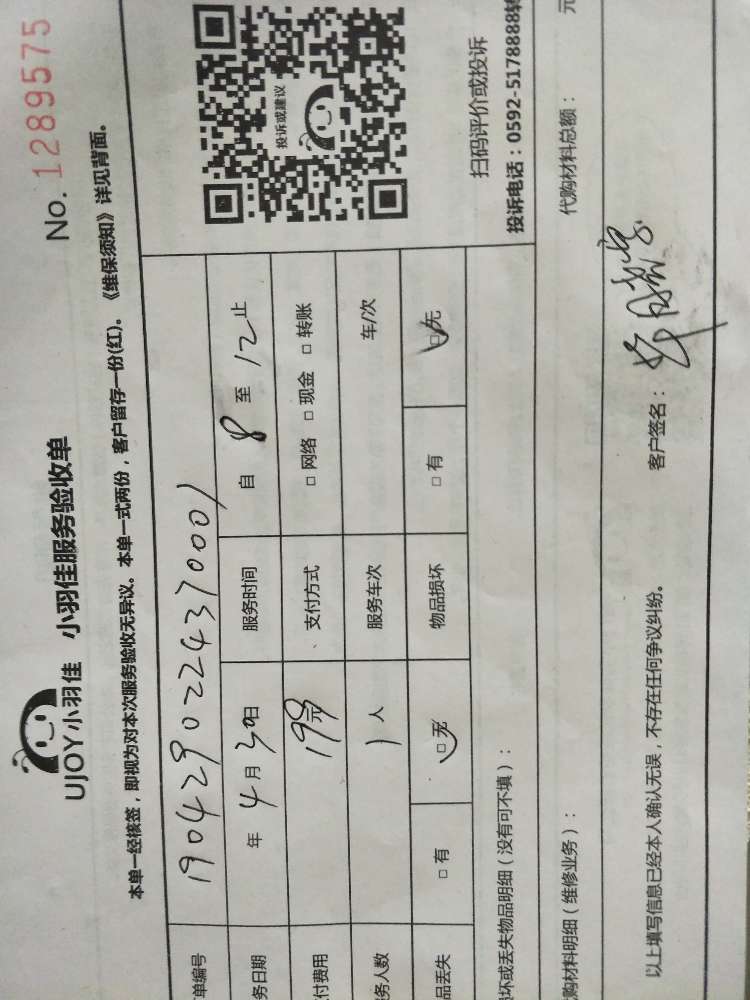 No. 1289575
UJOY小羽佳 小羽佳服务验收单
本单一经核签，即视为对本次服务验收无异议。本单一式两份，客户留存一份(红)。《维保须知》详见背面。
单编号 1904290224370001
务日期 年 4 月 30 日 服务时间 自 8 至 12 止
付费用 198 元 支付方式 □ 网络 □ 现金 □ 转账
务人数 1 人 服务车次 车/次
品丢失 □ 有 □ 无 物品损坏 □ 有 □ 无
投诉或建议
扫码评价或投诉
投诉电话：0592-5178888转
坏或丢失物品明细（没有可不填）：
购材料明细（维修业务）： 代购材料总额： 元
以上填写信息已经本人确认无误，不存在任何争议纠纷。 客户签名：